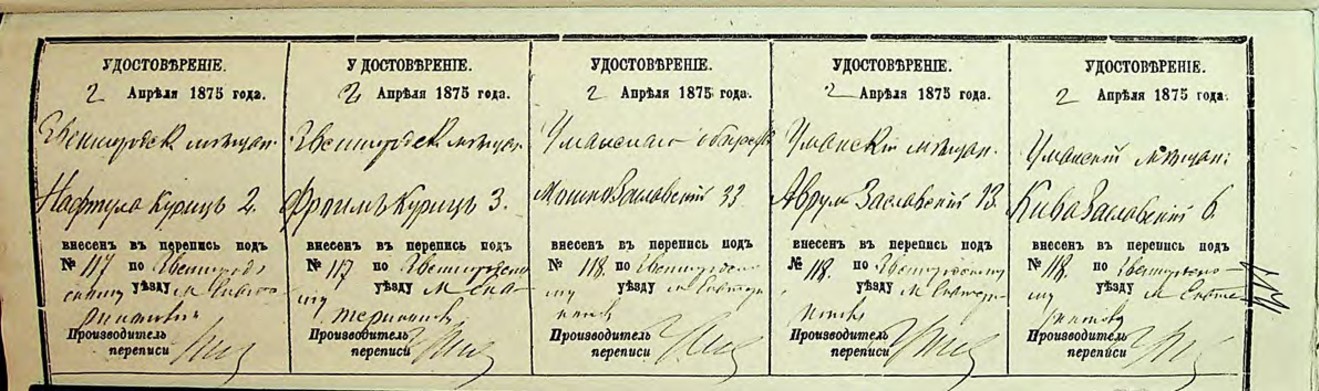 УДОСТОВѢРЕНІЕ.
2 Апрѣля 1875 года.
Звенигородск. мѣщан.
Нафтула Курицъ 2.
внесенъ въ перепись подъ
№ 117 по Звенигород-
скому уѣзду м. Екате-
Производитель
переписи
УДОСТОВѢРЕНІЕ.
2 Апрѣля 1875 года.
Звенигородск. мѣщан.
Фроимъ Курицъ 3.
внесенъ въ перепись подъ
№ 117 по Звенигородско-
му уѣзду м. Ека-
Производитель
переписи
УДОСТОВѢРЕНІЕ.
2 Апрѣля 1875 года.
Уманскаго
Мошко Заславскій 33
внесенъ въ перепись подъ
№ 118. по Звенигородско-
му уѣзду м.
Производитель
переписи
УДОСТОВѢРЕНІЕ.
2 Апрѣля 1875 года.
Уманскій мѣщан.
Аврум Заславскій 13.
внесенъ въ перепись подъ
№ 118. по Звенигородскому
уѣзду м.
Производитель
переписи
УДОСТОВѢРЕНІЕ.
2 Апрѣля 1875 года.
Уманскій мѣщан.
Кива Заславскій 6.
внесенъ въ перепись подъ
№ 118. по Звенигородско-
му уѣзду м. Екате-
Производитель
переписи